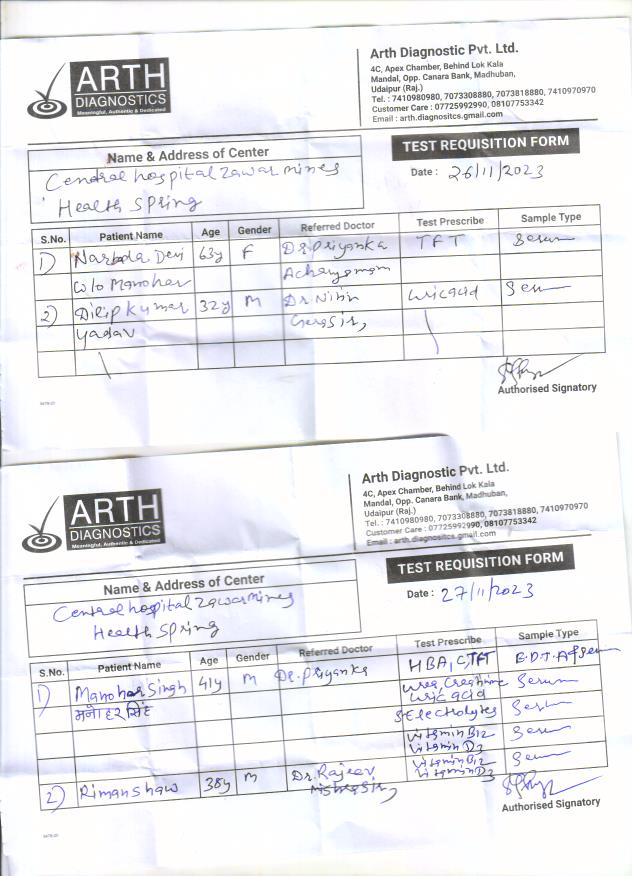 ARTH
DIAGNOSTICS
Meaningful, Authentic & Dedicated
Arth Diagnostic Pvt. Ltd.
4C, Apex Chamber, Behind Lok Kala
Mandal, Opp. Canara Bank, Madhuban,
Udaipur (Raj.)
Tel. : 7410980980, 7073308880, 7073818880, 7410970970
Customer Care : 07725992990, 08107753342
Email : arth.diagnositcs.gmail.com
TEST REQUISITION FORM
Name & Address of Center
Date : 26/11/2023
Central hospital zawar mines
Health Spring
S.No. Patient Name Age Gender Referred Doctor Test Prescribe Sample Type
1) Narbda Devi 63y F Dr. Priyanka TFT Serum
W/o Manohar
2) Dilip Kumar 32y M Dr. Nitin Uric acid Serum
Yadav Sir,
Authorised Signatory
ARTH
DIAGNOSTICS
Meaningful, Authentic & Dedicated
Arth Diagnostic Pvt. Ltd.
4C, Apex Chamber, Behind Lok Kala
Mandal, Opp. Canara Bank, Madhuban,
Udaipur (Raj.)
Tel. : 7410980980, 7073308880, 7073818880, 7410970970
Customer Care : 07725992990, 08107753342
Email : arth.diagnositcs.gmail.com
TEST REQUISITION FORM
Name & Address of Center
Date : 27/11/2023
Central hospital zawar mines
Health Spring
S.No. Patient Name Age Gender Referred Doctor Test Prescribe Sample Type
1) Manohar Singh 41y M Dr. Priyanka HBA1C, TFT E.D.T.A, Serum
मनोहर सिंह Urea, Creatinine Serum
Uric acid
S Electrolytes Serum
Vitamin B12 Serum
Vitamin D3
Vitamin B12 Serum
Vitamin D3
2) Rimanshaw 38y M Dr. Rajeev
Mishra Sir,
Authorised Signatory